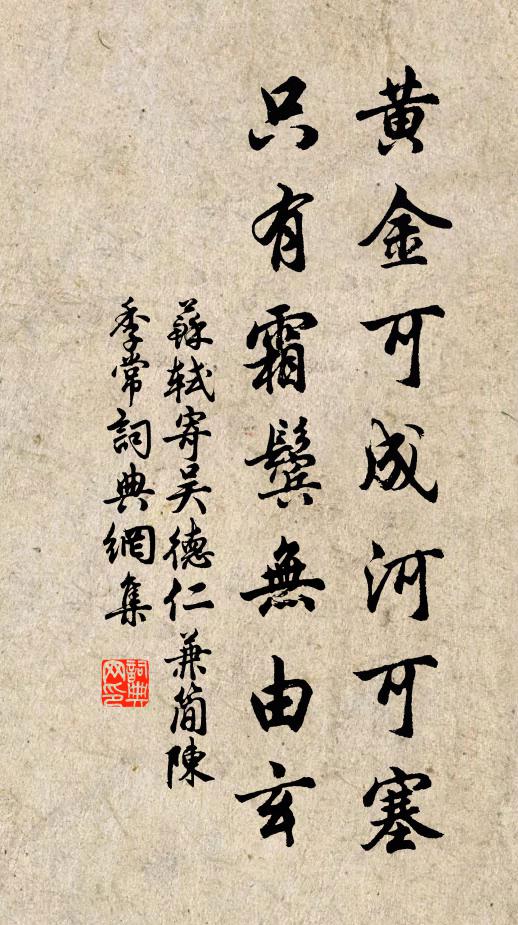 黃金可成河可塞
只有霜鬢無由玄
蘇軾寄吳德仁兼簡陳
季常詞典網集
詞典網印